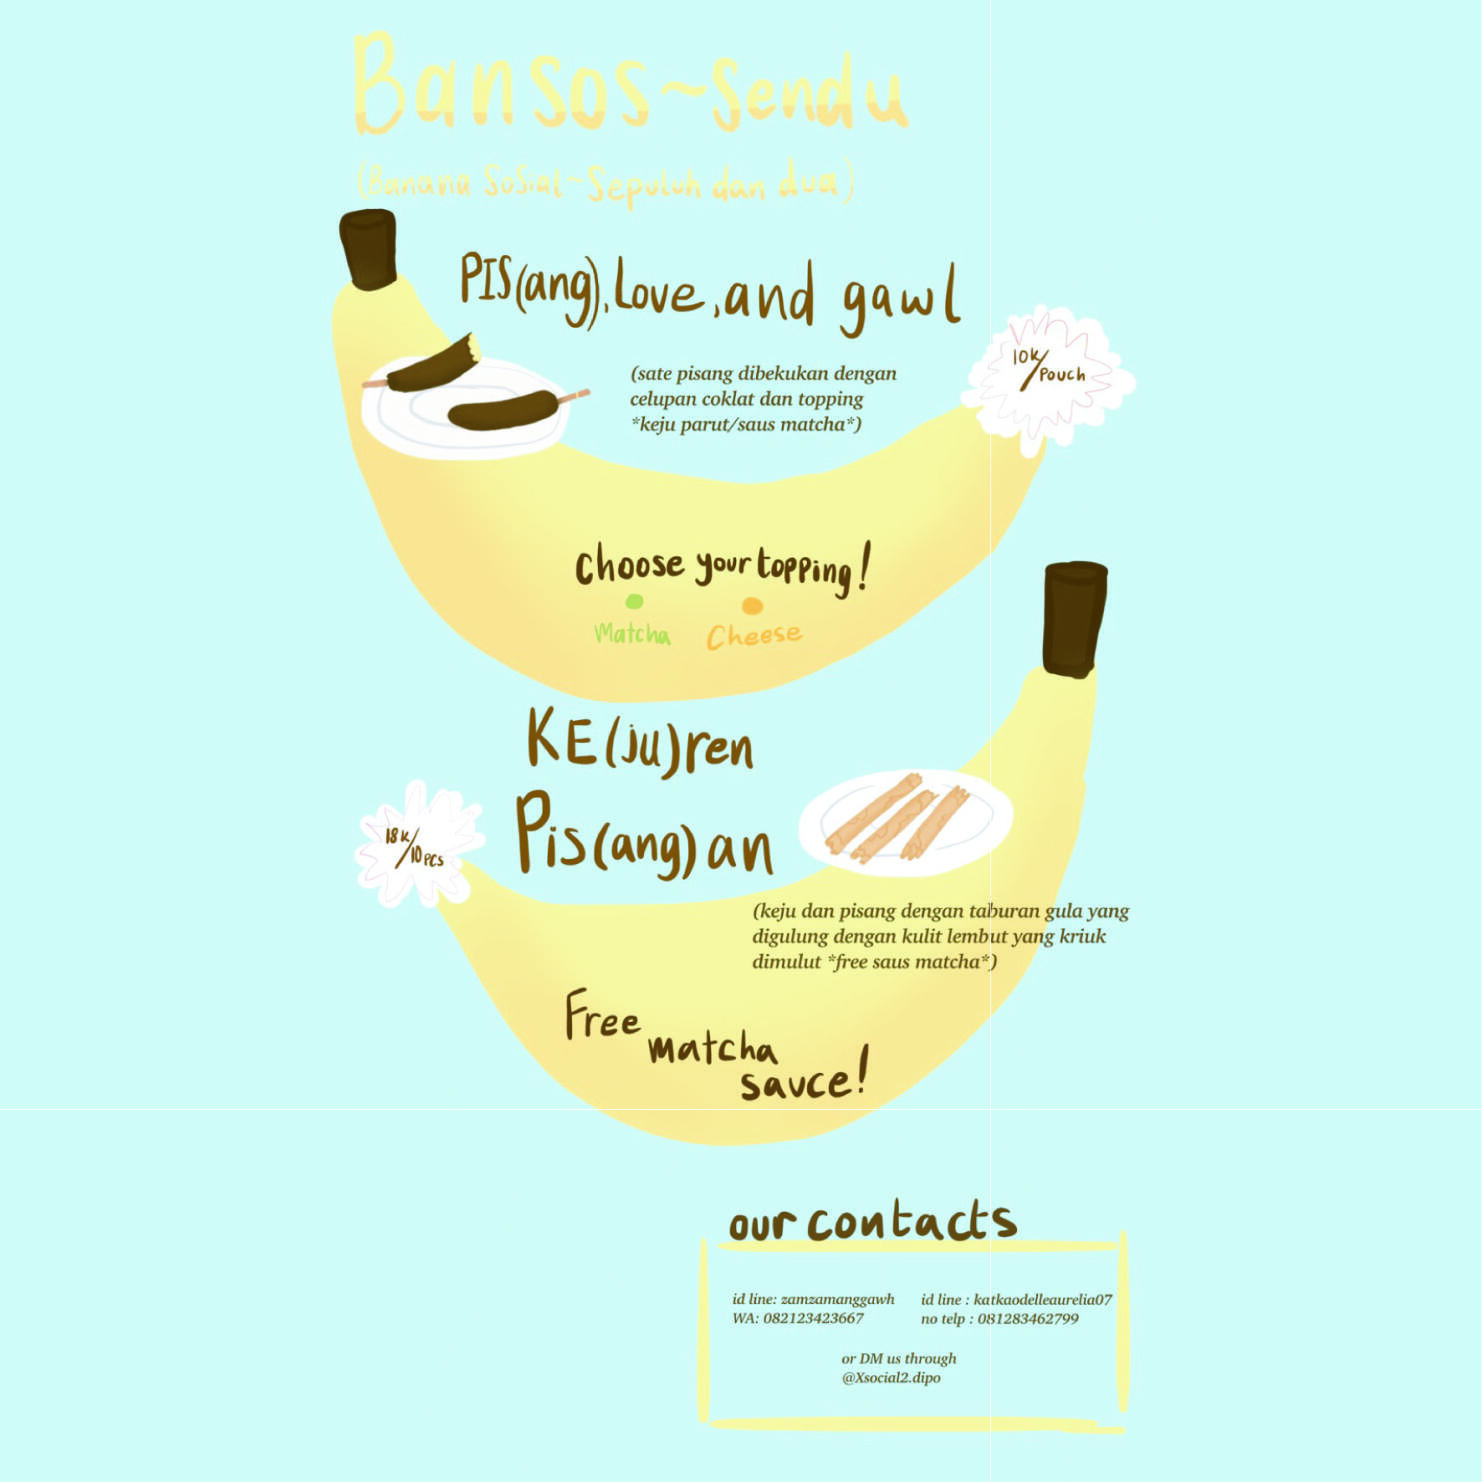 Bansos~Sendu
(Banana Sosial~Sepuluh dan dua)
PIS(ang), Love, and gawl
10K/Pouch
(sate pisang dibekukan dengan
celupan coklat dan topping
*keju parut/saus matcha*)
choose your topping!
Matcha Cheese
KE(ju)ren
Pis(ang)an
18K/10pcs
(keju dan pisang dengan taburan gula yang
digulung dengan kulit lembut yang kriuk
dimulut *free saus matcha*)
Free
matcha
sauce!
our contacts
id line: zamzamanggawh
WA: 082123423667
id line : katkaodelleaurelia07
no telp : 081283462799
or DM us through
@Xsocial2.dipo